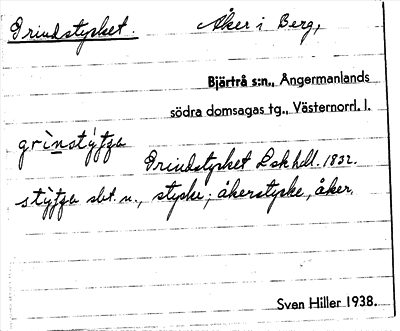 Grindstycket. Åker i Berg,
Bjärtrå s:n., Ångermanlands
södra domsagas tg., Västernorrl. l.
grìnstýʃʒa
Grindstycket Lsk hdl. 1832.
stýʃʒa sbt. n., stycke; åkerstycke, åker.
Sven Hiller 1938.